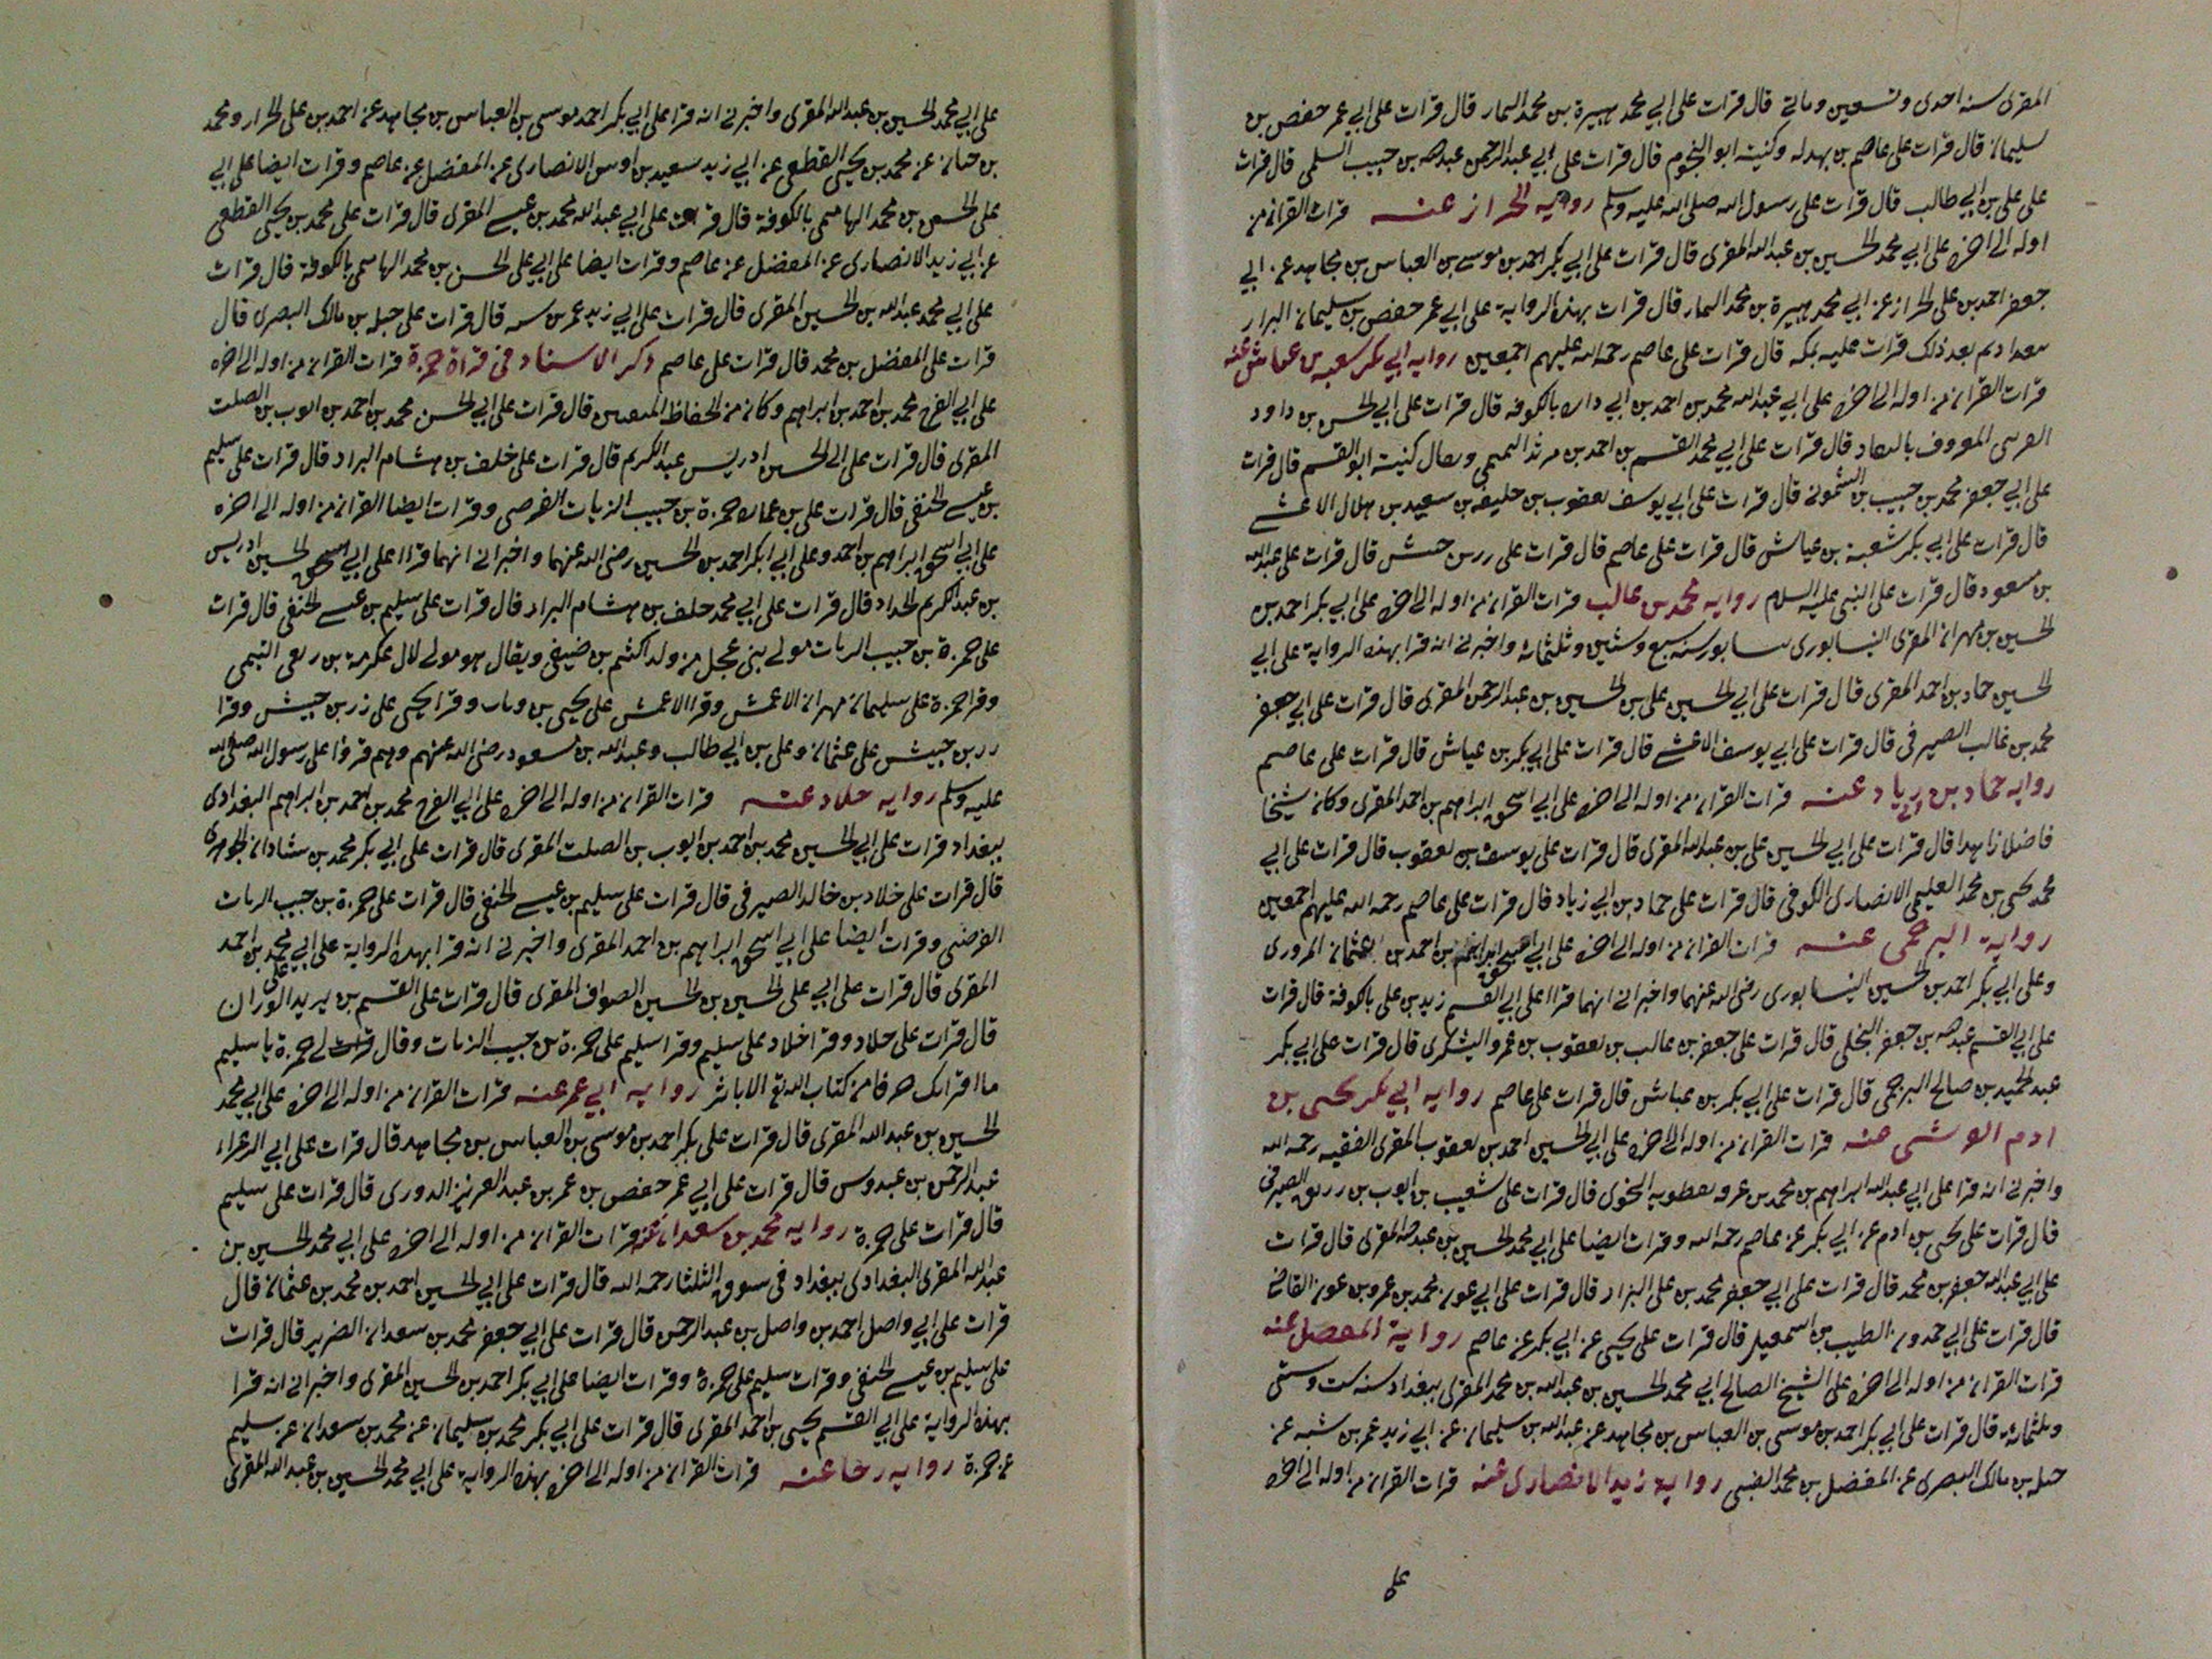 المقرى سنه احدى وتسعين وماتى قال قرات على ابي محمد هبيرة بن محمد التمار قال قرات على ابي عمر حفص بن
سليمان قال قرات على عاصم بن بهدله وكنيته ابو النجوم قال قرات على ابي عبد الرحمن عبد الله بن حبيب السلمى قال قرات
على على بن ابي طالب قال قرات على رسول الله صلى الله عليه وسلم روايه الخراز عنه قرات القران من
اوله الى اخره على ابي محمد الحسين بن عبد الله المقرى قال قرات على ابي بكر احمد بن موسى بن العباس بن مجاهد عن ابي
جعفر احمد بن على الخراز عن ابي محمد هبيرة بن محمد التمار قال قرات بهذه الرواية على ابي عمر حفص بن سليمان البزاز
ببغداد ثم بعد ذلك قرات عليه بمكه قال قرات على عاصم رحمة الله عليهم اجمعين روايه ابي بكر شعبه بن عياش عنه
قرات القران من اوله الى اخره على ابي عبد الله محمد بن احمد بن ابي دارة بالكوفه قال قرات على ابي الحسن بن داود
المعروف بالنقاد قال قرات على ابي محمد القسم بن احمد بن مرثد التميمى ويقال كنيته ابو القسم قال قرات
على ابي جعفر محمد بن حبيب بن الشمونى قال قرات على ابي يوسف يعقوب بن خليفه بن سعيد بن هلال الاعشى
قال قرات على ابي بكر شعبة بن عياش قال قرات على عاصم قال قرات على زر بن حبيش قال قرات على عبد الله
بن مسعود قال قرات على النبى عليه السلام روايه محمد بن غالب قرات القران من اوله الى اخره على ابي بكر احمد بن
الحسين بن مهران المقرى النيسابورى بنيسابور سنه سبع وستين وثلثمائة واخبرنى انه قرا بهذه الرواية على ابي
الحسين حماد بن احمد المقرى قال قرات على ابي الحسين على بن الحسين بن عبد الرحمن المقرى قال قرات على ابي جعفر
محمد بن غالب الصيرفى قال قرات على ابي يوسف الاعشى قال قرات على ابي بكر بن عياش قال قرات على عاصم
روايه حماد بن زياد عنه قرات القران من اوله الى اخره على ابي اسحق ابراهيم بن احمد المقرى وكان شيخا
فاضلا زاهدا قال قرات على ابي الحسين على بن عبد الله المقرى قال قرات على يوسف بن يعقوب قال قرات على ابي
محمد يحيى بن محمد العليمى الانصارى الكوفى قال قرات على حماد بن ابي زياد قال قرات على عاصم رحمة الله عليهم اجمعين
روايه البرجمى عنه قرات القران من اوله الى اخره على ابي اسحق ابراهيم بن احمد بن عثمان المروزى
وعلى ابي بكر احمد بن الحسين النيسابورى رضى الله عنهما واخبرانى انهما قرا على ابي القسم زيد بن على بالكوفة قال قرات
على ابي القسم عبد الله بن جعفر البجلى قال قرات على جعفر بن غالب بن يعقوب بن عمرو اليشكرى قال قرات على ابي بكر
عبد الحميد بن صالح البرجمى قال قرات على ابي بكر بن عياش قال قرات على عاصم روايه ابي بكر يحيى بن
ادم عنه قرات القران من اوله الى اخره على ابي الحسين احمد بن يعقوب المقرى الفقيه رحمه الله
واخبرنى انه قرا على ابي عبد الله ابراهيم بن محمد بن عرفه نفطويه النحوى قال قرات على شعيب بن ايوب بن رزيق الصيرفى
قال قرات على يحيى بن ادم عن ابي بكر عن عاصم رحمه الله وقرات ايضا على ابي محمد الحسين بن عبد الله المقرى قال قرات
على ابي عبد الله جعفر بن محمد قال قرات على ابي جعفر محمد بن على البزاز قال قرات على ابي عون محمد بن عمرو بن عون القاضى
قال قرات على ابي حمدون الطيب بن اسمعيل قال قرات على يحيى عن ابي بكر عن عاصم رواية المفضل عنه
قرات القران من اوله الى اخره على الشيخ الصالح ابي محمد الحسين بن عبد الله بن محمد المقرى ببغداد سنه ست وستين
وثلثمائة قال قرات على ابي بكر احمد بن موسى بن العباس بن مجاهد عن عبد الله بن سليمان عن ابي زيد عمر بن شبه عن
جبله بن مالك البصرى عن المفضل بن محمد الضبى روايه زيد الانصارى عنه قرات القران من اوله الى اخره
على
على ابي محمد الحسين بن عبد الله المقرى واخبرنى انه قرا على ابي بكر احمد بن موسى بن العباس بن مجاهد عن احمد بن على الخزاز ومحمد
بن حيان عن محمد بن يحيى القطعى عن ابي زيد سعيد بن اوس الانصارى عن المفضل عن عاصم وقرات ايضا على ابي
على الحسن بن محمد الهاشمى بالكوفة قال قرات على ابي عبد الله محمد بن عيسى المقرى قال قرات على محمد بن يحيى القطعى
عن ابي زيد الانصارى عن المفضل عن عاصم وقرات ايضا على ابي على الحسن بن محمد الهاشمى بالكوفة قال قرات
على ابي محمد عبد الله بن الحسين المقرى قال قرات على ابي زيد عمر بن شبه قال قرات على جبله بن مالك البصرى قال
قرات على المفضل بن محمد قال قرات على عاصم ذكر الاسناد فى قراة حمزة قرات القران من اوله الى اخره
على ابي الفرج محمد بن احمد بن ابراهيم وكان من الحفاظ قال قرات على ابي الحسن محمد بن احمد بن ايوب بن الصلت
المقرى قال قرات على ابي الحسين ادريس عبد الكريم قال قرات على خلف بن هشام البزاز قال قرات على سليم
بن عيسى الحنفى قال قرات على بن عمارة حمزة بن حبيب الزيات الفرضى وقرات ايضا القران من اوله الى اخره
على ابي اسحق ابراهيم بن احمد وعلى ابي بكر احمد بن الحسين رضى الله عنهما واخبرانى انهما قراا على ابي اسحق الحسين ادريس
بن عبد الكريم الحداد قال قرات على ابي محمد خلف بن هشام البزاز قال قرات على سليم بن عيسى الحنفى قال قرات
على حمزة بن حبيب الزيات مولى بنى عجل من ولد اكثم بن ضيفى ويقال هو مولى لال عكرمة بن ربعى التيمى
وقرا حمزة على سليمان مهران الاعمش وقرا الاعمش على يحيى بن وثاب وقرا يحيى على زر بن حبيش وقرا
زر بن حبيش على عثمان وعلى بن ابي طالب وعبد الله بن مسعود رضى الله عنهم وهم قرؤا على رسول الله صلى الله
عليه وسلم روايه خلاد عنه قرات القران من اوله الى اخره على ابي الفرج محمد بن احمد بن ابراهيم البغدادى
ببغداد قرات على ابي الحسين محمد بن احمد بن ايوب بن الصلت المقرى قال قرات على ابي بكر محمد بن شاذان الجوهرى
قال قرات على خلاد بن خالد الصيرفى قال قرات على سليم بن عيسى الحنفى قال قرات على حمزة بن حبيب الزيات
الفرضى وقرات ايضا على ابي اسحق ابراهيم بن احمد المقرى واخبرنى انه قرا بهذه الرواية على ابي محمد على بن احمد
المقرى قال قرات على ابي على الحسين بن الحسين الصواف المقرى قال قرات على القسم بن يزيد الوزان
قال قرات على خلاد وقرا خلاد على سليم وقرا سليم على حمزة بن حبيب الزيات وقال قرات لى حمزة يا سليم
ما اقراتك حرفا من كتاب الله تع الا باثر روايه ابي عمر عنه قرات القران من اوله الى اخره على ابي محمد
الحسين بن عبد الله المقرى قال قرات على بكر احمد بن موسى بن العباس بن مجاهد قال قرات على ابي الزعراء
عبد الرحمن بن عبدوس قال قرات على ابي عمر حفص بن عمر بن عبد العزيز الدورى قال قرات على سليم
قال قرات على حمزة روايه محمد بن سعدان عنه قرات القران من اوله الى اخره على ابي محمد الحسين بن
عبد الله المقرى البغدادى ببغداد فى سوق الثلثا رحمه الله قال قرات على ابي الحسين احمد بن محمد بن عثمان قال
قرات على ابي واصل احمد بن واصل بن عبد الرحمن قال قرات على ابي جعفر محمد بن سعدان الضرير قال قرات
على سليم بن عيسى الحنفى وقرات سليم على حمزة وقرات ايضا على ابي بكر احمد بن الحسين المقرى واخبرانى انه قرا
بهذه الرواية على ابي القسم يحيى بن احمد المقرى قال قرات على ابي بكر محمد بن سليمان عن محمد بن سعدان عن سليم
عن حمزة روايه رجا عنه قرات القران من اوله الى اخره بهذه الرواية على ابي محمد الحسين بن عبد الله المقرى